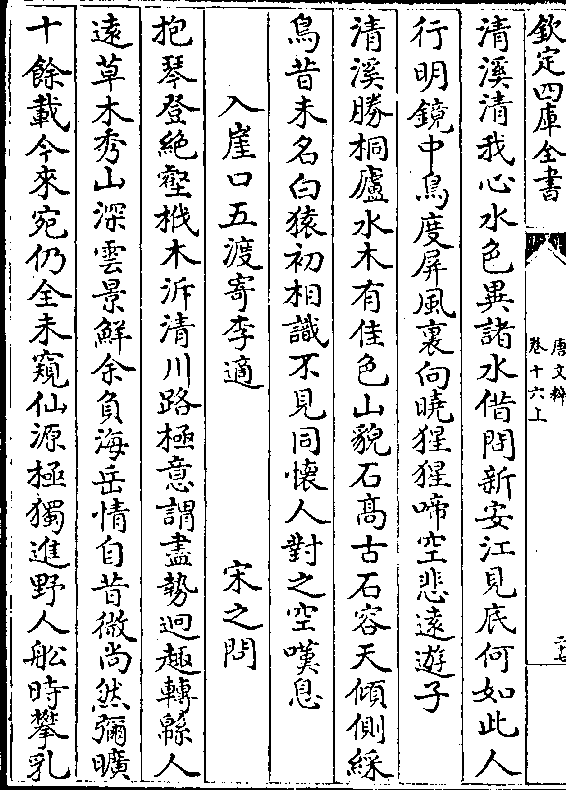 欽定四庫全書
唐文粹
卷十六上
清溪清我心水色異諸水借問新安江見底何如此人
行明鏡中鳥度屏風裏向曉猩猩啼空悲遠遊子
清溪勝桐廬水木有佳色山貌石高古石容天傾側綵
鳥昔未名白猿初相識不見同懷人對之空嘆息
入崖口五渡寄李適　宋之問
抱琴登絶壑扙木泝清川路極意謂盡勢迴趣轉緜人
遠草木秀山深雲景鮮余負海岳情自昔微尚然彌曠
十餘載今來宛仍全未窺仙源極獨進野人舩時攀乳